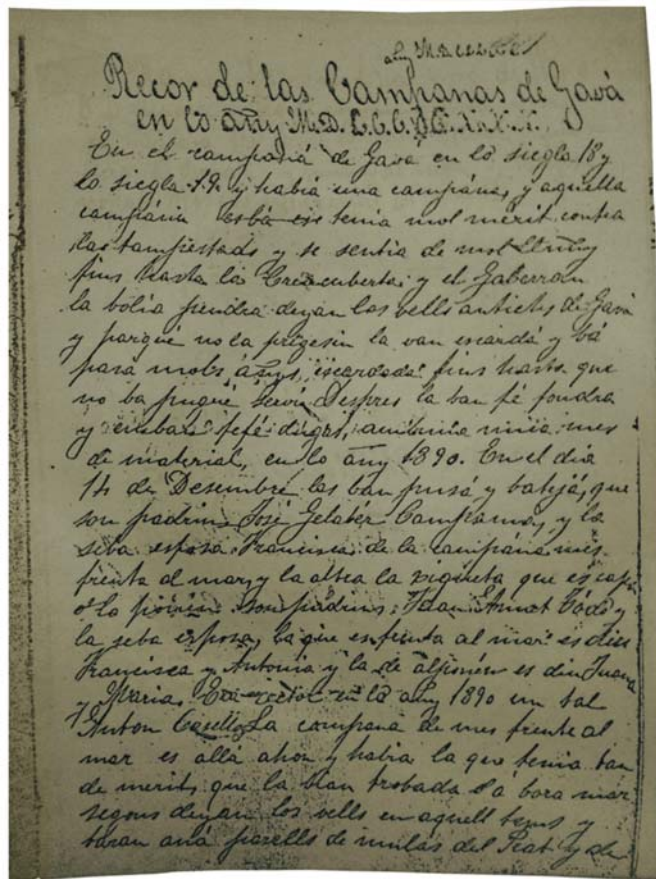 Recor de las Campanas de Gavá
en lo añy M.D.C.C.C.
En el campaná de Gavá en lo sigle 18 y
lo sigle 19 y habia una campána, y aquella
campána tenia mol mérit contra
las tampestads y se sentia de mol lluñy
fins hasta la Creu cuberta; y el Gaberran
la bolia pendra deyan los vells antichs de Gavá
y parqué no la precsin la van escardá y bá
pasá molts áñys, escardada fins hasta que
no ba pugué serví. Despres la ban fé fondra
y ne fé dugas, una mica mes
de material, en lo añy 1890. En el dia
14 de Desembre las ban pusá y batejá, que
son padrins José Gelabér Campmana, y la
seba esposa Francisca de la campána mes
frenta al mar, y la altra la xiqueta que es cap
a lo son padrins: Juan Amat Códi y
la seba esposa, la que enfrenta al mar es diu
Francisca y Antonia y la de alponén es diu Juana
y Maria, Era rector en lo añy 1890 un tal
Anton Casellas La campana de mes frente al
mar es allá ahon y habia la que tenia tan
de merit, que la bian trobada á bora mar
segons deyan los vells en aquell tems y
baran aná parells de mulas del Prat y de